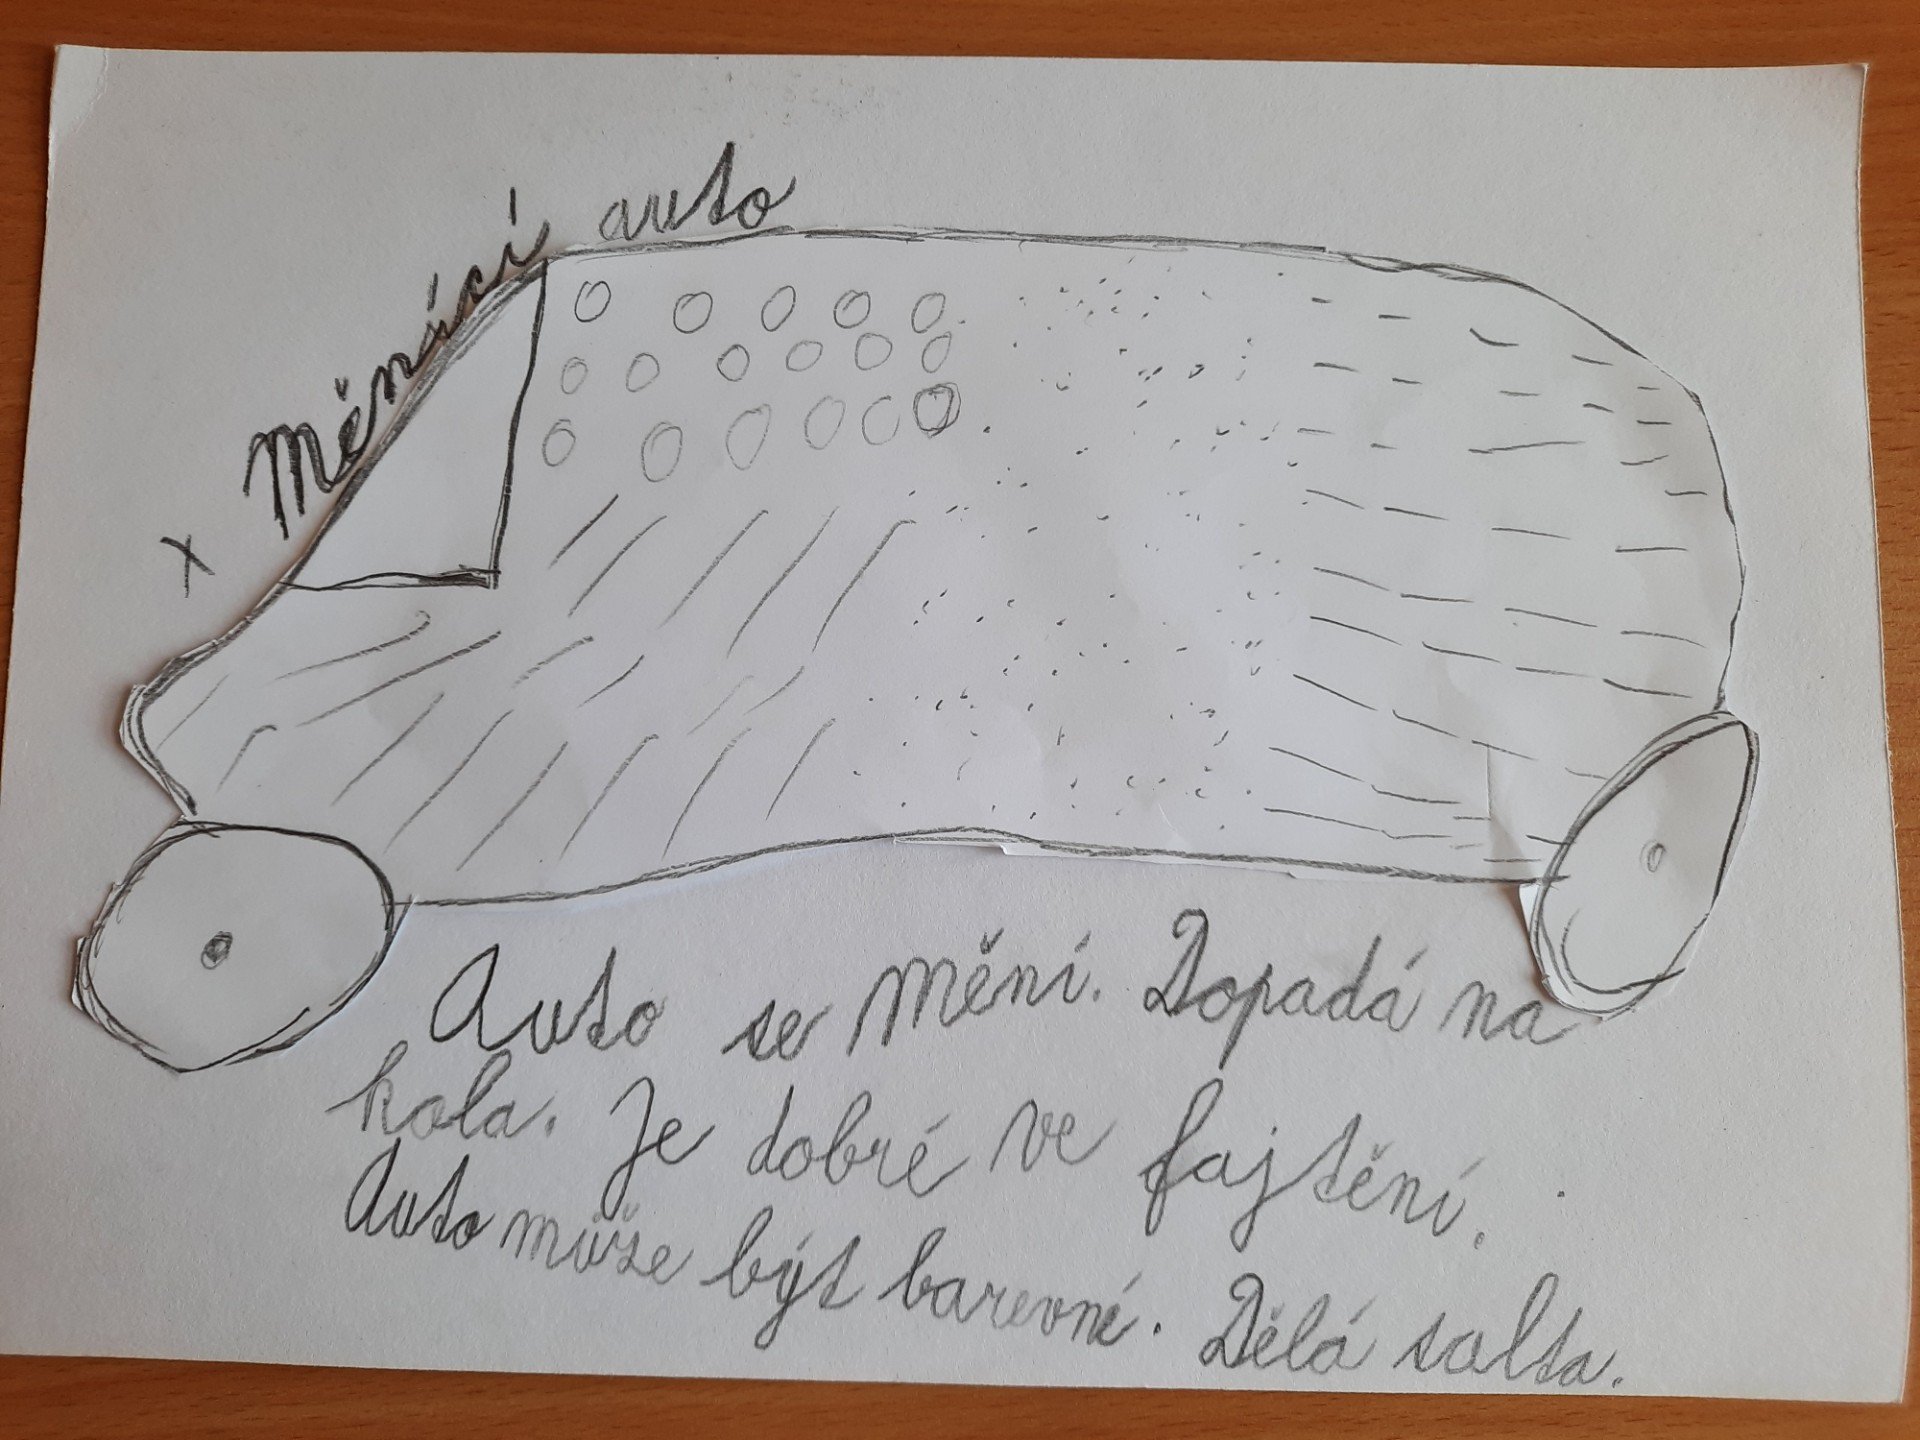 x Měnící auto
Auto se mění. Dopadá na
kola. Je dobré ve fajtění.
Auto může být barevné. Dělá salta.